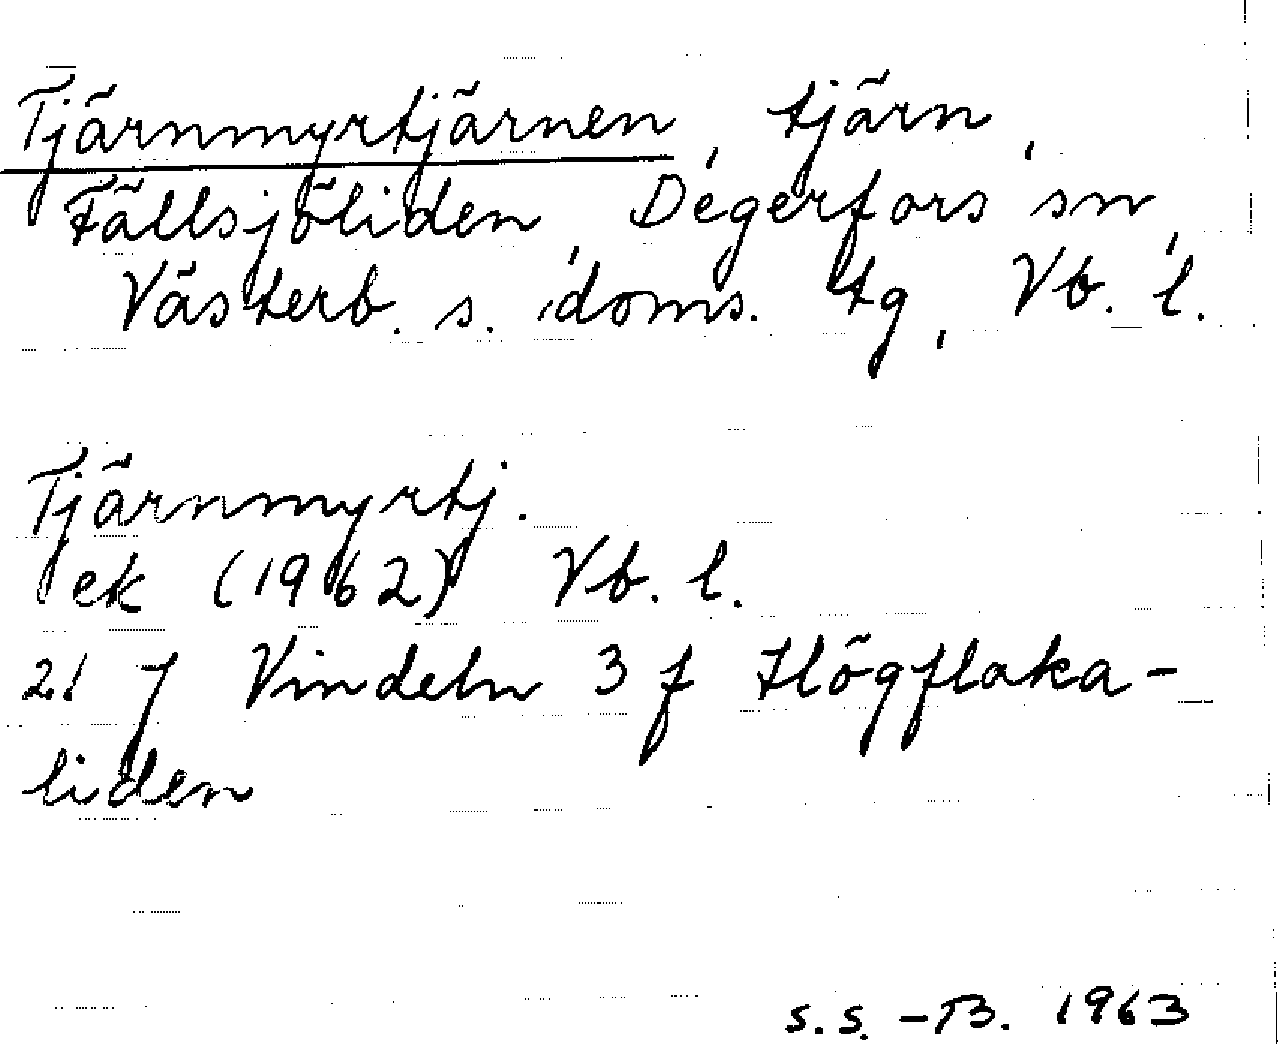 Tjärnmyrtjärnen, tjärn,
Fällsjöliden, Degerfors sn,
Västerb. s. doms. tg, Vb. l.
Tjärnmyrtj.
ek (1962) Vb. l.
21 J Vindeln 3 f Högflaka-
liden
S.S. -B. 1963